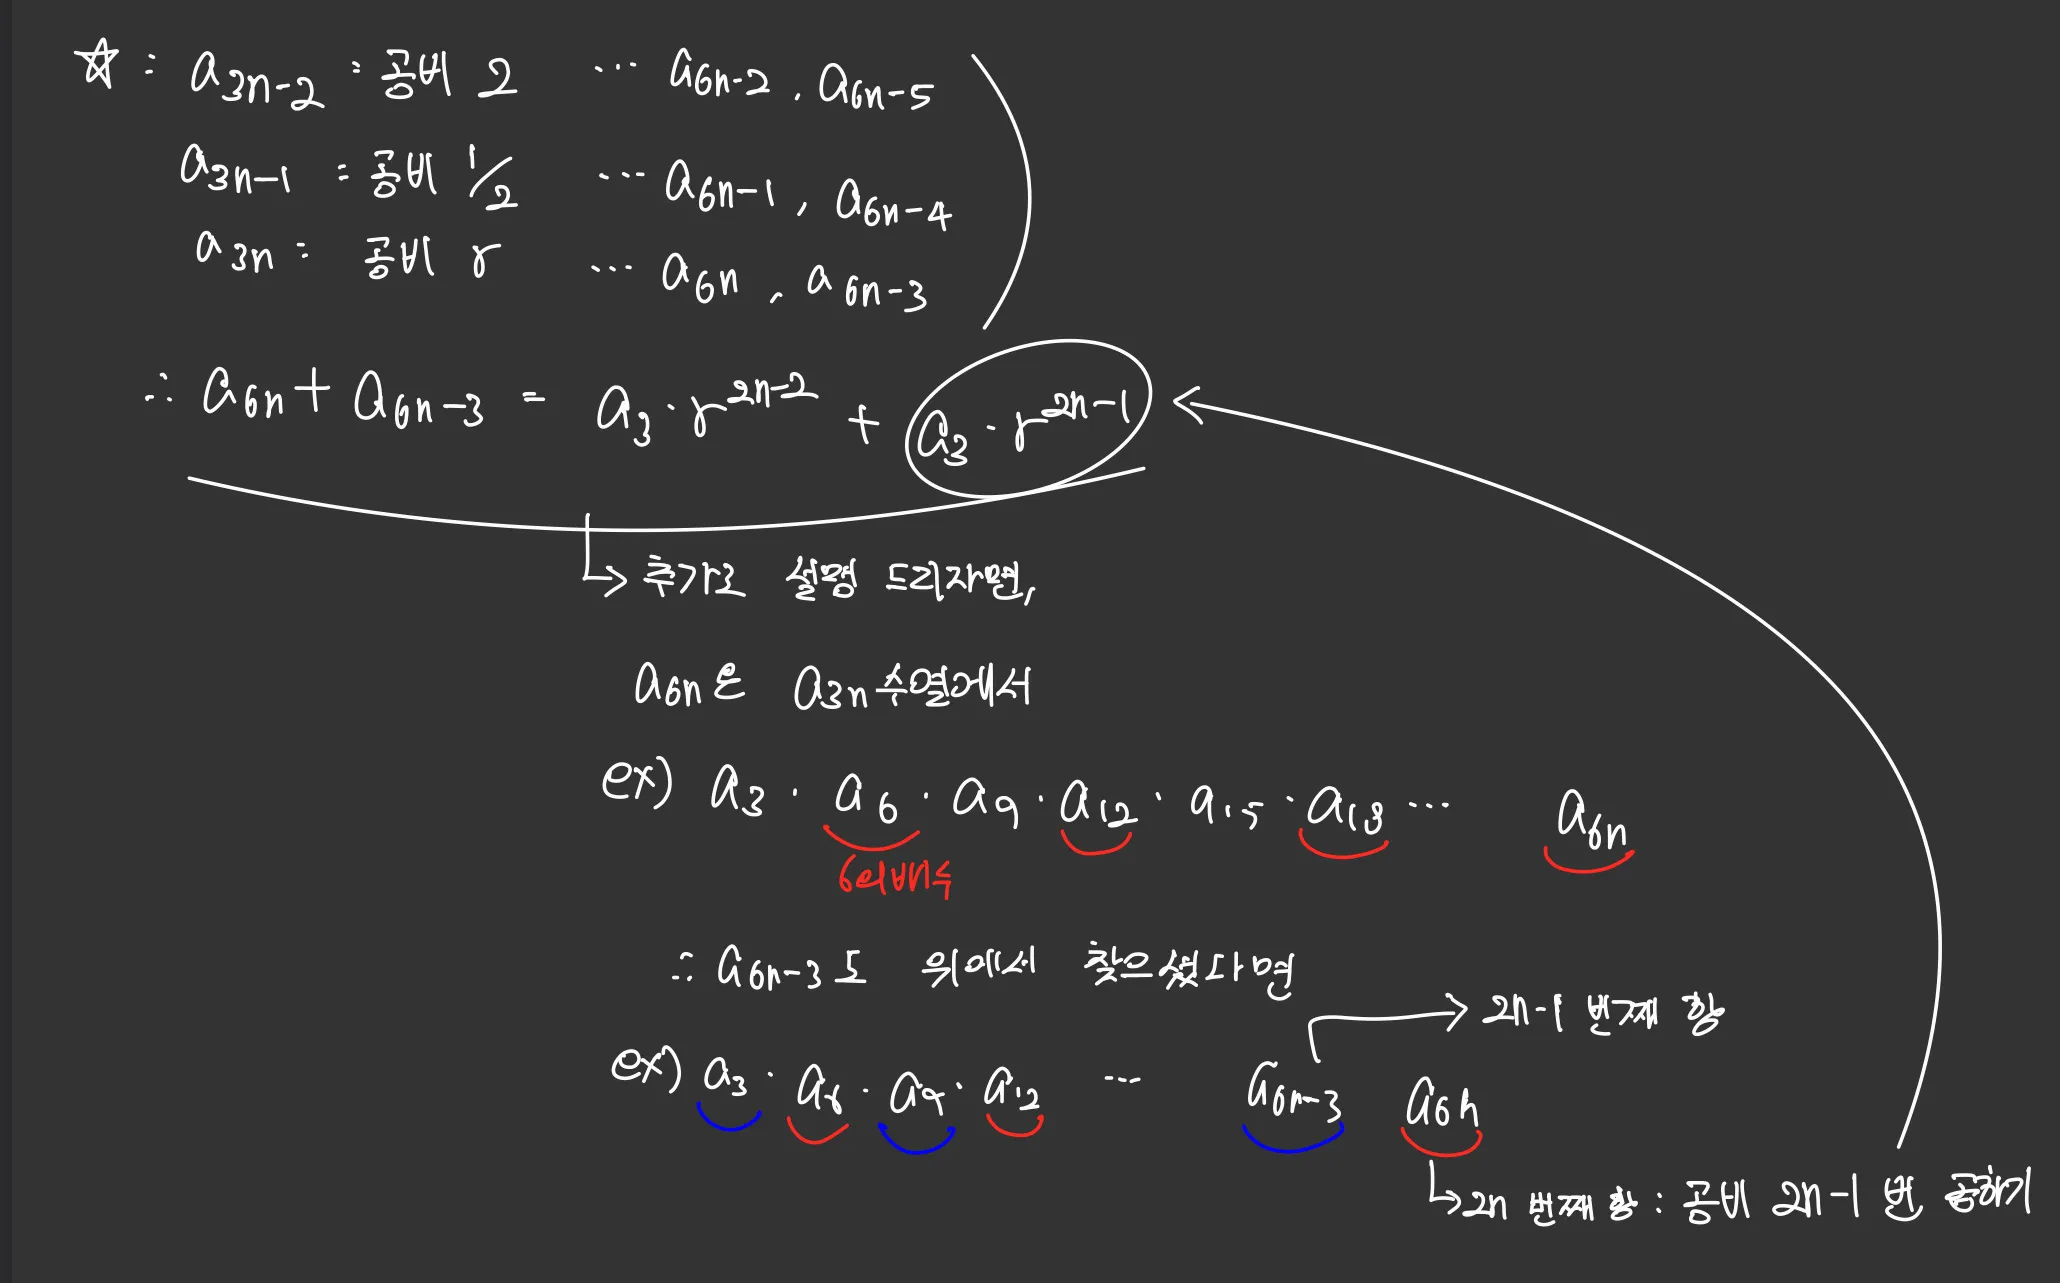 ☆ : a₃ₙ₋₂ : 공비 2 ··· a₆ₙ₋₂ , a₆ₙ₋₅
a₃ₙ₋₁ : 공비 1/2 ··· a₆ₙ₋₁ , a₆ₙ₋₄
a₃ₙ : 공비 r ··· a₆ₙ , a₆ₙ₋₃
∴ a₆ₙ + a₆ₙ₋₃ = a₃ · r²ⁿ⁻² + a₃ · r²ⁿ⁻¹
↳ 추가로 설명 드리자면,
a₆ₙ은 a₃ₙ수열에서
ex) a₃ · a₆ · a₉ · a₁₂ · a₁₅ · a₁₈ ··· a₆ₙ
6의배수
∴ a₆ₙ₋₃도 위에서 찾으셨다면
→ 2n-1 번째 항
ex) a₃ · a₆ · a₉ · a₁₂ ··· a₆ₙ₋₃ a₆ₙ
↳ 2n 번째 항 : 공비 2n-1 번 곱하기